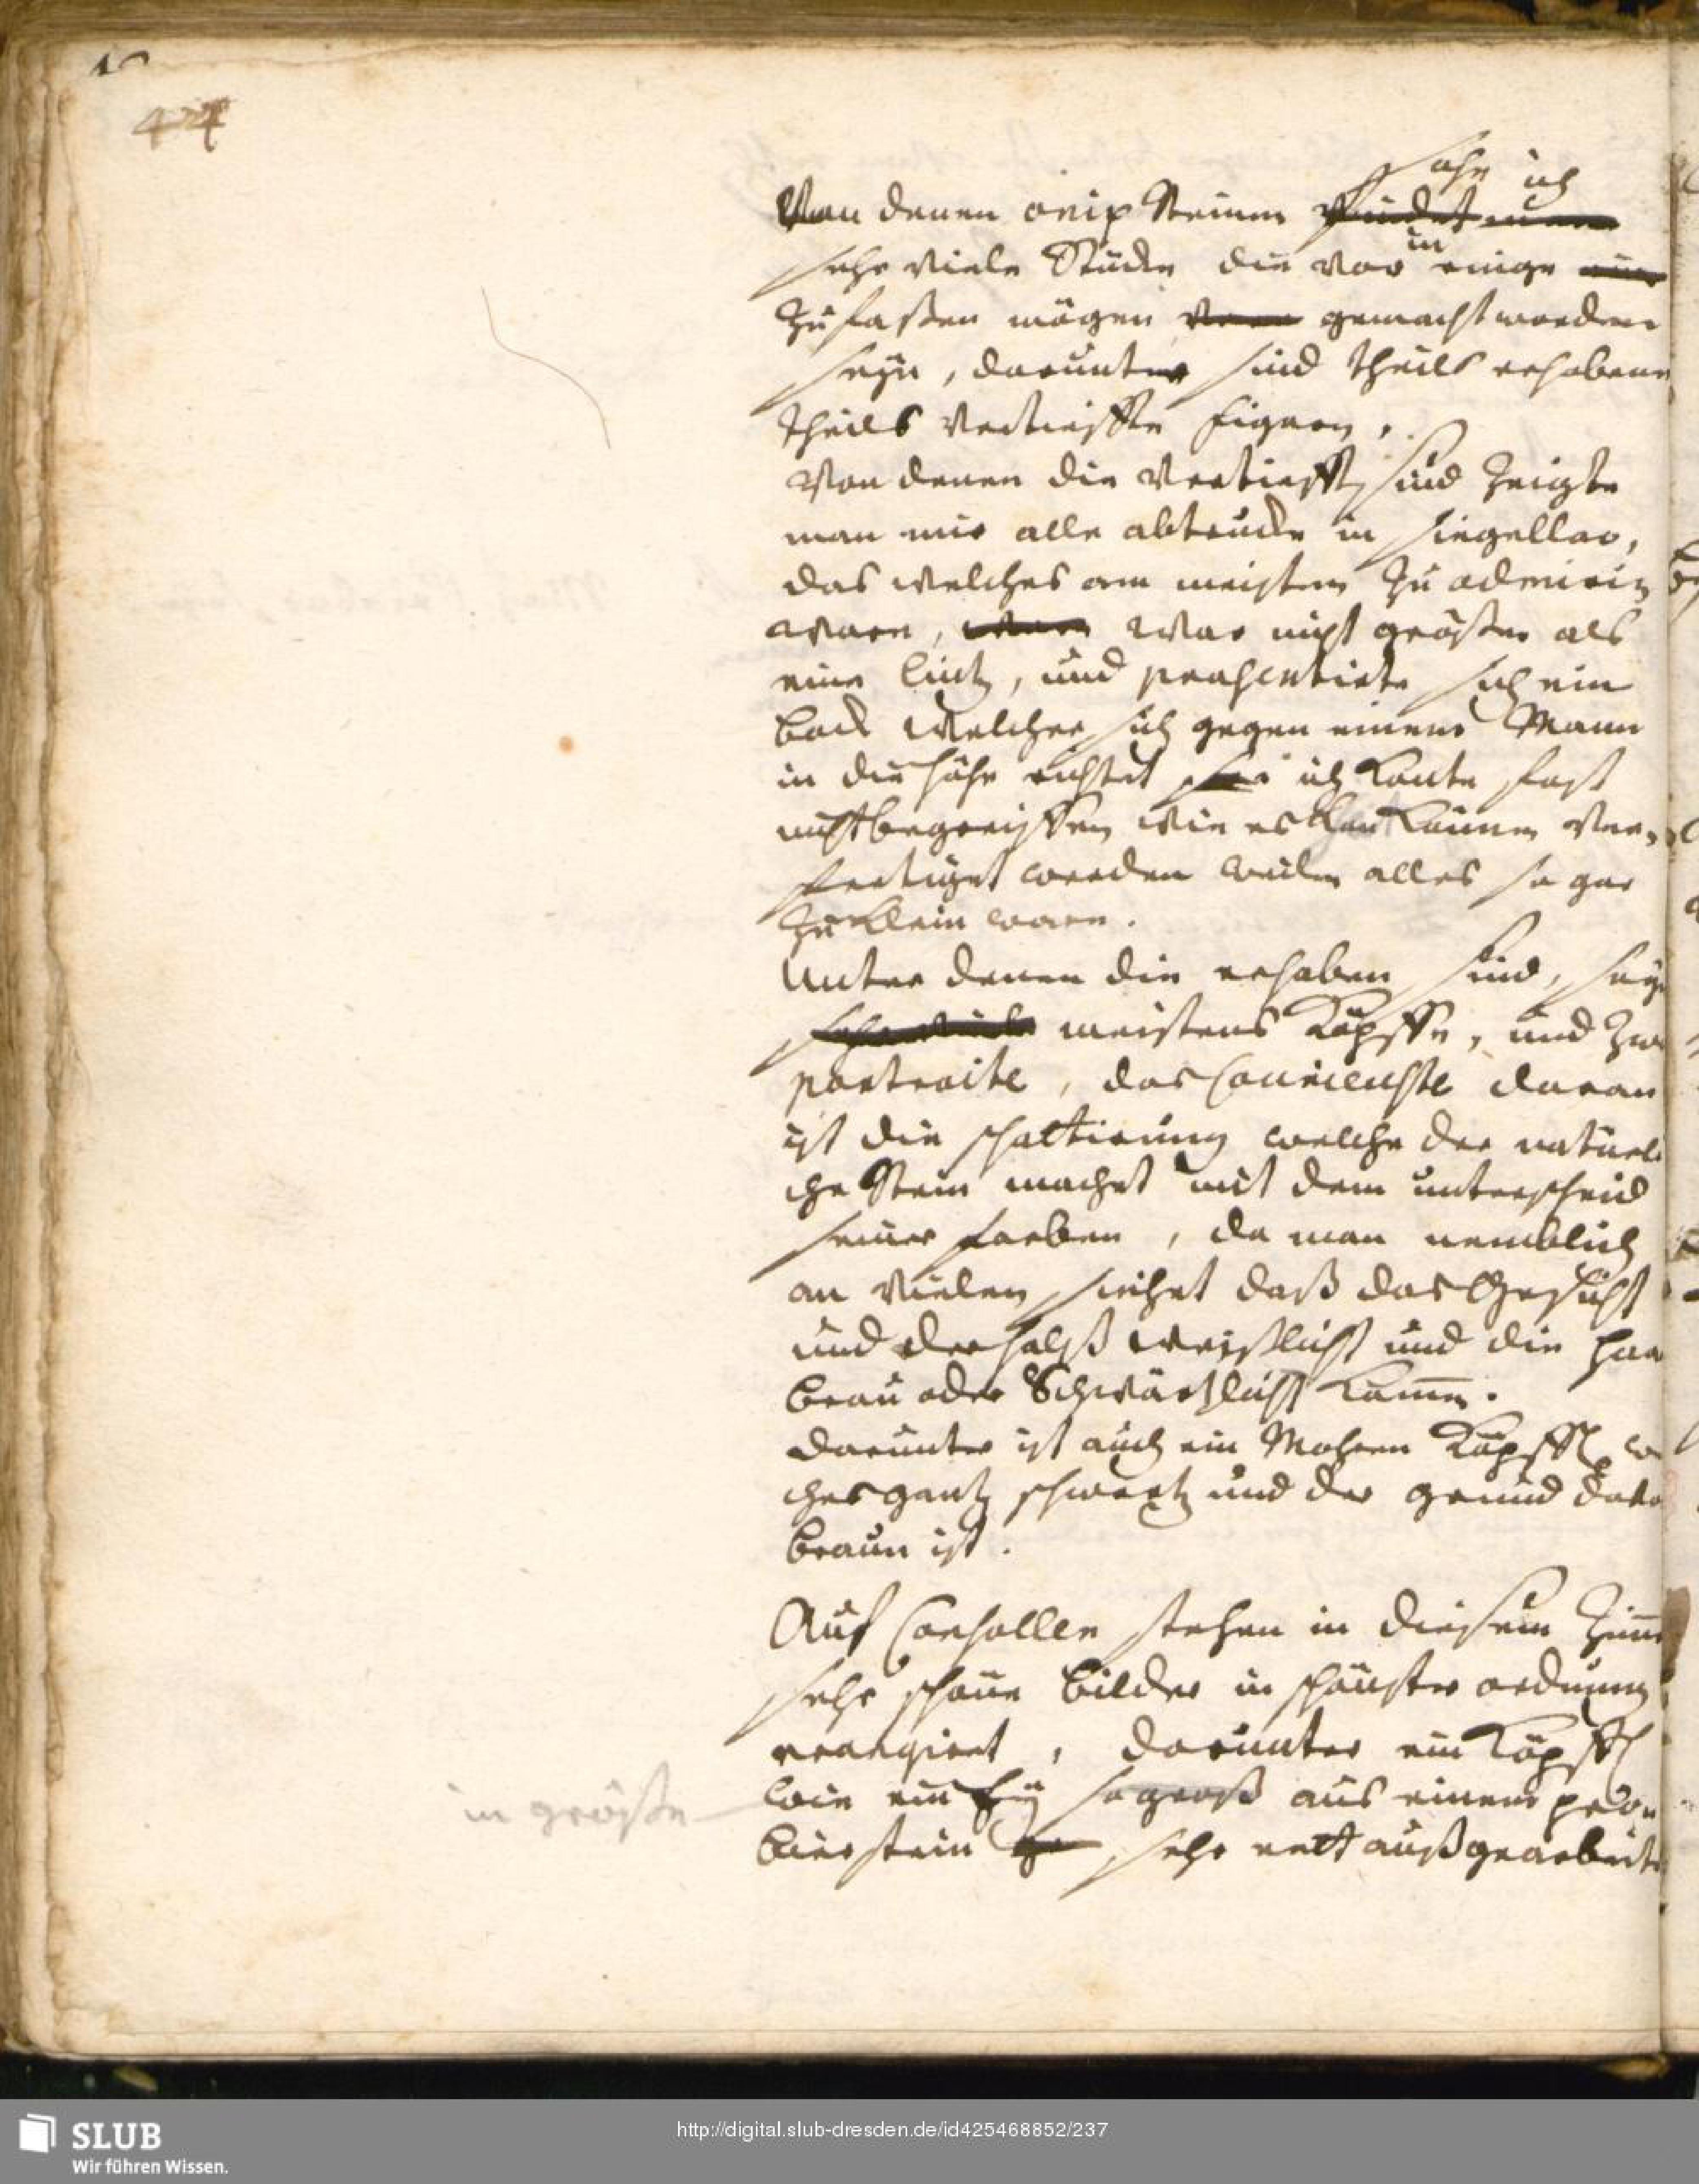 424
sahe ich
Von denen onix Steinen findet man
sehr viele Stücke die vor in einige
zu faßen mögen gemacht worden
seyn, darunter sind theils erhabene
theils vertieffte Figuren,
Von denen die vertiefft sind zeigte
man mir alle abtrucke in siegellac,
das welches am meisten zu admirirn
ware, war nicht größer als
eine Lintz, und præsentirte sich ein
bock welcher sich gegen einem Mann
in die höhe richtet ich konte fast
nicht begreiffen wie es können ver-
fertiget werden weilen alles so gar
zu klein ware.
Unter denen die erhaben sind, seyn
sehr viele meistens Köpffe, und zwa
portraite, das Courieuste daran
ist die schattirung welche der natürli
che Stein machet mit dem unterscheid
seiner farben, da man nemblich
an vielen siehet daß das Gesicht
und der halß weißlicht und die haa
braun oder Schwärtzlicht kamen.
darunter ist auch ein Mohren Köpffl w
ches gantz schwartz und der grund dava
braun ist.
Auf Consollen stehen in diesem Zimme
sehr schöne bilder in schönster ordnung
rrangiert, darunter ein Köpffl
in größe
wie ein Ey so groß aus einem
stein sehr nett außgearbeite
SLUB
Wir führen Wissen.
http://digital.slub-dresden.de/id425468852/237